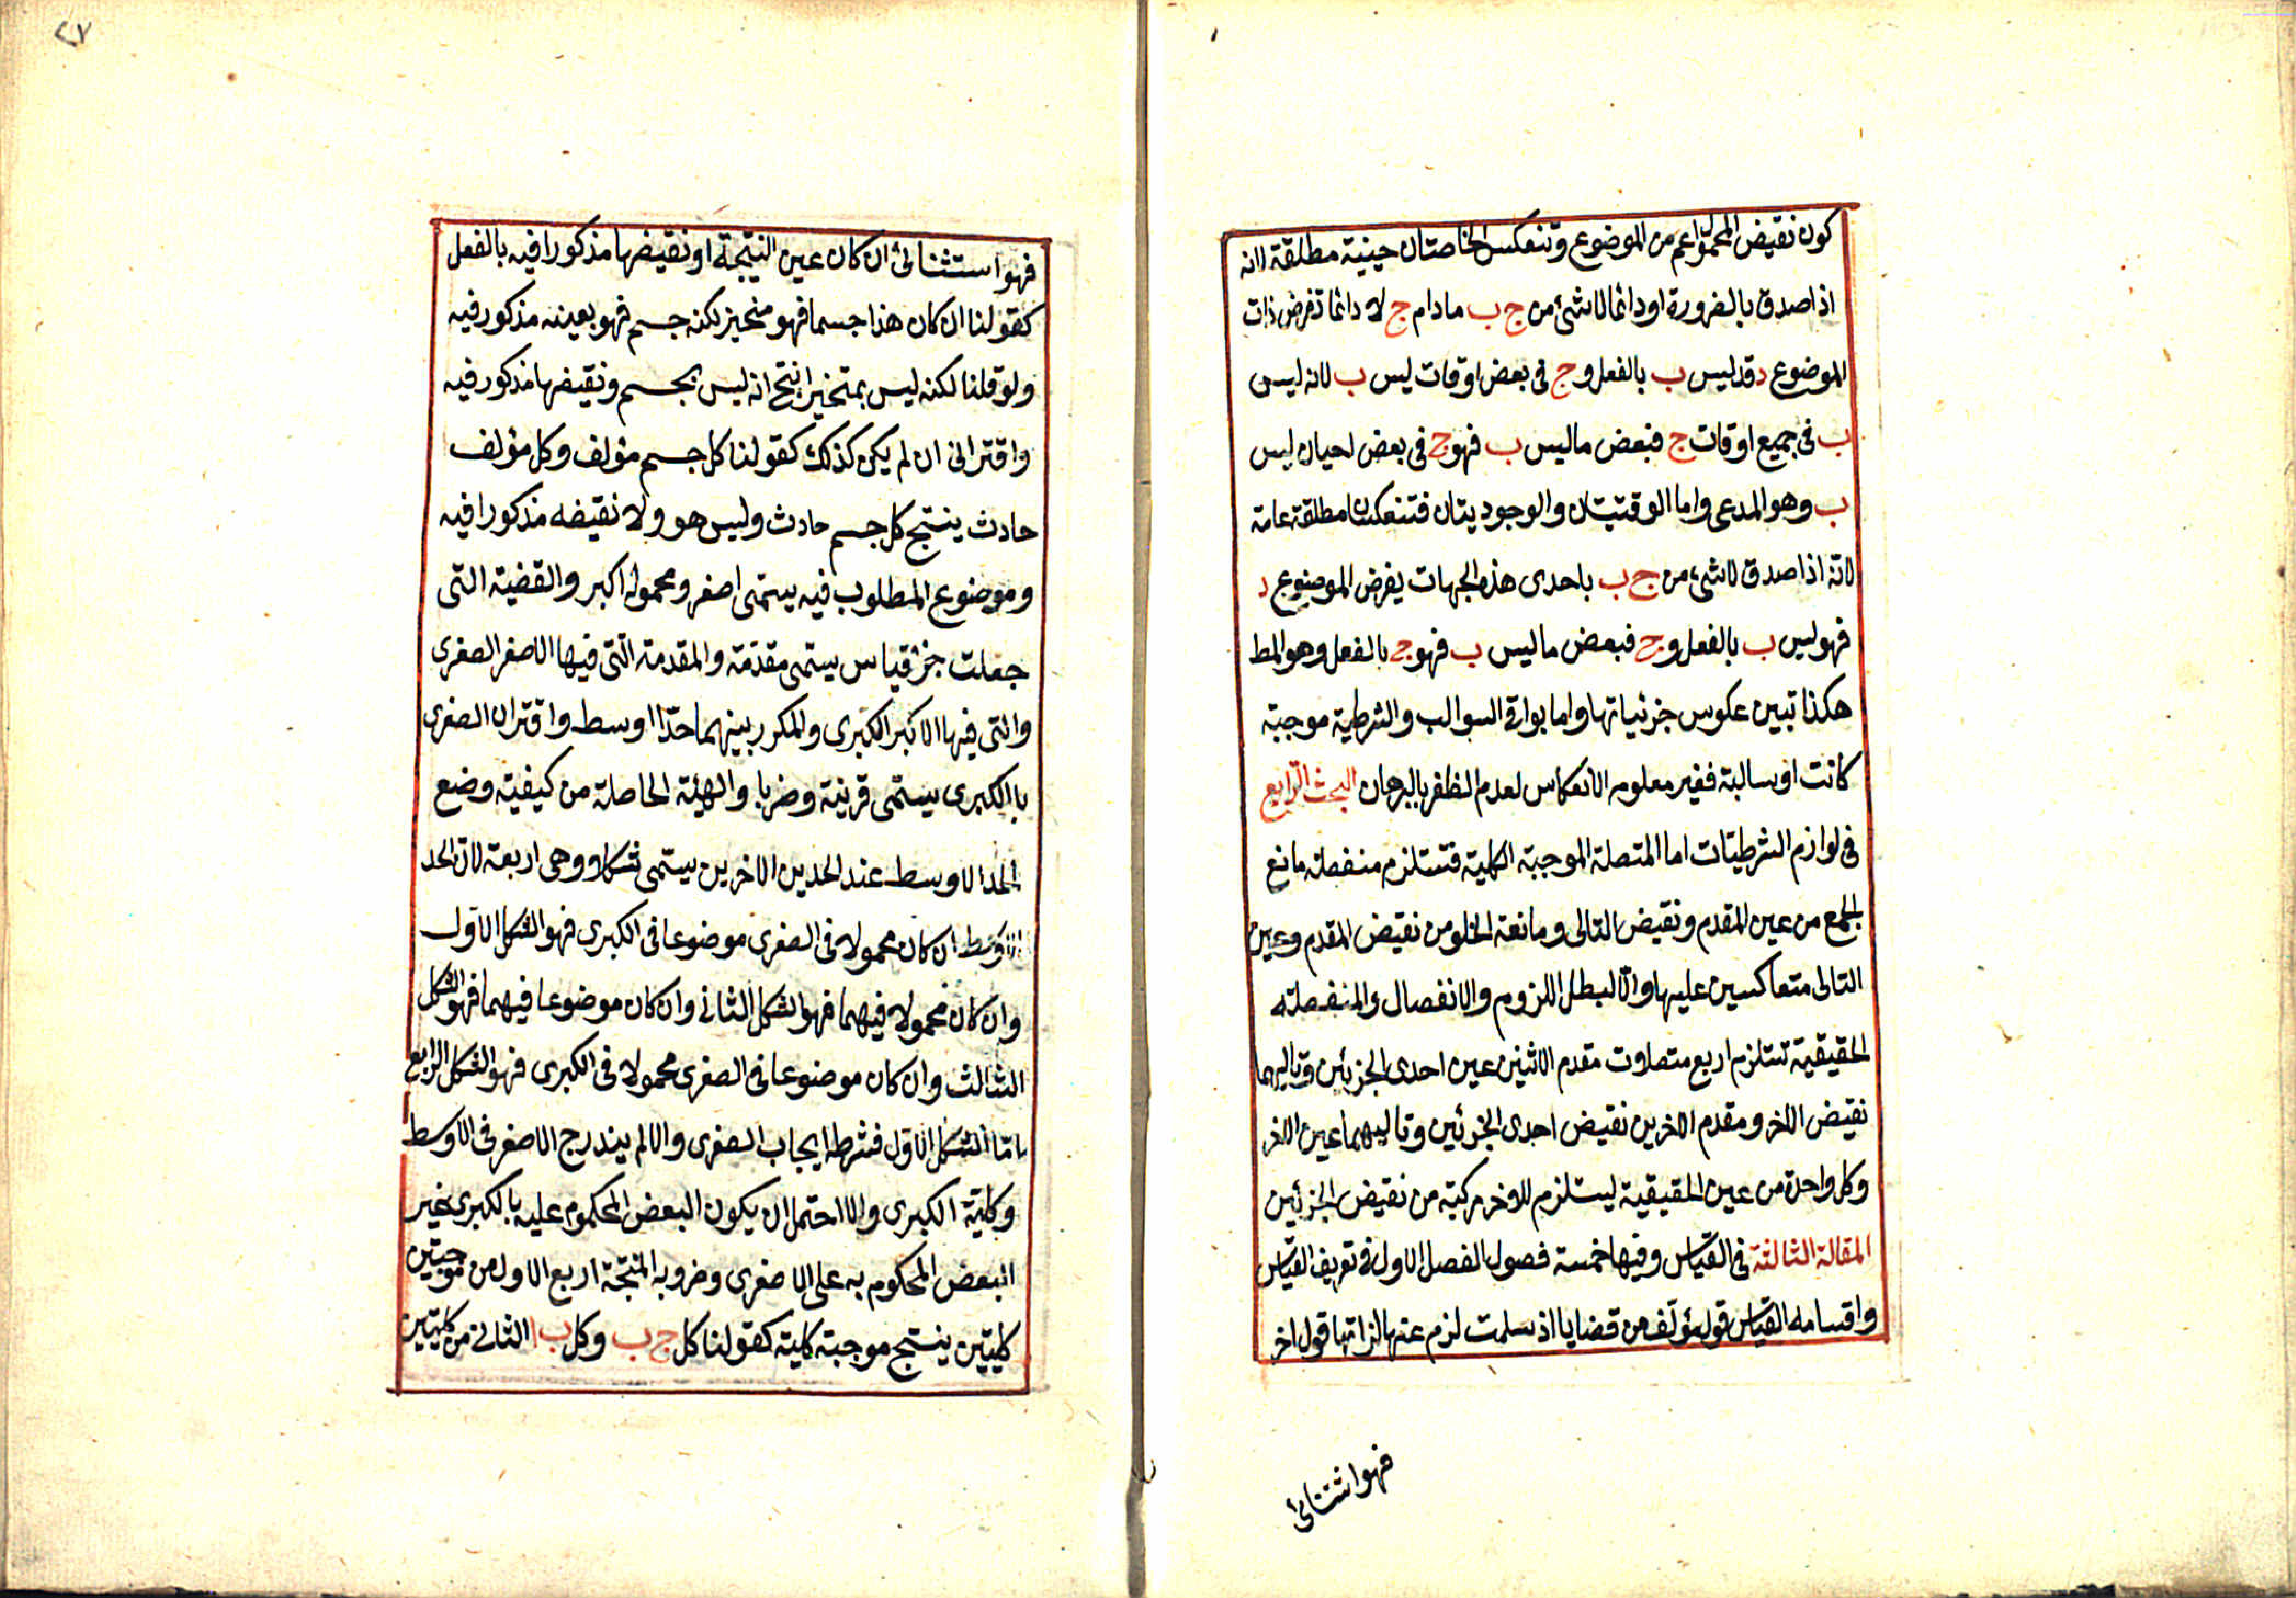 كون نقيض المحمول اعم من الموضوع وتنعكس الخاصتان حينية مطلقة لانه
اذا صدق بالضرورة او دائما لاشئ من ج ب مادام ج لا دائما نفرض ذات
الموضوع د فد ليس ب بالفعل و ج فى بعض اوقات ليس ب لانه ليس
ب فى جميع اوقات ج فبعض ما ليس ب فهو ج فى بعض احيان ليس
ب وهو المدعى واما الوقتيتان والوجوديتان فتنعكسان مطلقة عامة
لانه اذا صدق لاشئ من ج ب باحدى هذه الجهات يفرض الموضوع د
فهو ليس ب بالفعل و ج فبعض ما ليس ب فهو ج بالفعل وهو المط
هكذا تبين عكوس جزئياتها واما بواقى السوالب والشرطية موجبة
كانت او سالبة فغير معلومه الانعكاس لعدم الظفر بالبرهان البحث الرابع
فى لوازم الشرطيات اما المتصلة الموجبة الكلية فتستلزم منفصلة مانع
الجمع من عين المقدم ونقيض التالى ومانعة الخلو من نقيض المقدم وعين
التالى متعاكسين عليها والا لبطل اللزوم والانفصال والمنفصلة
الحقيقية تستلزم اربع متصلات مقدم الاثنين عين احدى الجزئين وتاليهما
نقيض الاخر ومقدم الاخرين نقيض احدى الجزئين وتاليهما عين الاخر
وكل واحدة من عين الحقيقية ليستلزم للاخر مركبة من نقيض الجزئين
المقالة الثالثة فى القياس وفيها خمسة فصول الفصل الاول فى تعريف القياس
واقسامه القياس قول مؤلف من قضايا اذ سلمت لزم عنها لذاتها قول اخر
فهو استثنائئ
٢٧
فهو استثنائئ ان كان عين النتيجة او نقيضها مذكورا فيه بالفعل
كقولنا ان كان هذا جسما فهو متحيز لكنه جسم فهو بعينه مذكور فيه
ولو قلنا لكنه ليس بمتحيز انتج انه ليس بجسم ونقيضها مذكور فيه
واقترانى ان لم يكن كذلك كقولنا كل جسم مؤلف وكل مؤلف
حادث ينتج كل جسم حادث وليس هو ولا نقيضه مذكورا فيه
وموضوع المطلوب فيه يسمى اصغر ومحموله اكبر والقضية التى
جعلت جزء قياس يسمى مقدمة والمقدمة التى فيها الاصغر الصغرى
والتى فيها الاكبر الكبرى والمكرر بينهما حدا اوسط واقتران الصغرى
با الكبرى يسمى قرينة وضربا والهيئة الحاصلة من كيفية وضع
الحد الاوسط عند الحدين الاخرين يسمى شكلا وهى اربعة لان الحد
الاوسط ان كان محمولا فى الصغرى موضوعا فى الكبرى فهو الشكل الاول
وان كان محمولا فيهما فهو الشكل الثانى وان كان موضوعا فيهما فهو الشكل
الثالث وان كان موضوعا فى الصغرى محمولا فى الكبرى فهو الشكل الرابع
اما الشكل الاول فشرطه ايجاب الصغرى والا لم يندرج الاصغر فى الاوسط
وكلية الكبرى والا احتمل ان يكون البعض المحكوم عليه با لكبرى غير
البعض المحكوم به على الاصغرى وضروبه المنتجة اربع الاول من موجبتين
كليتين ينتج موجبة كلية كقولنا كل ج ب وكل ب ا الثانى من كليتين